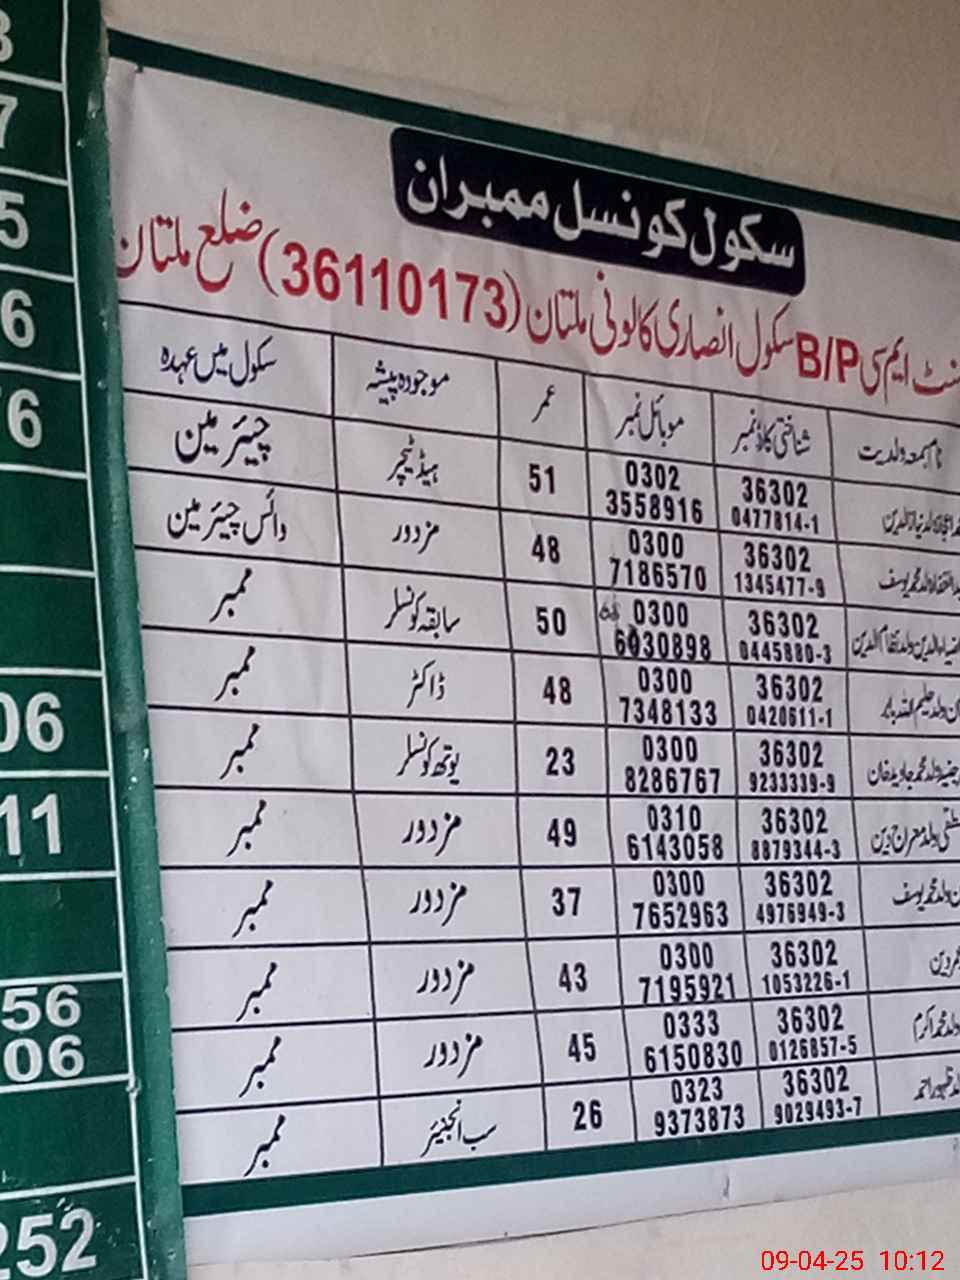 سکول کونسل ممبران
ایم سی B/P سکول انصاری کالونی ملتان (36110173) ضلع ملتان
نام بمعہ ولدیت شناختی کارڈ نمبر موبائل نمبر عمر موجودہ پیشہ سکول میں عہدہ
36302 0477814-1 0302 3558916 51 ہیڈ ٹیچر چیئر مین
ولد محمد یوسف 36302 1345477-9 0300 7186570 48 مزدور وائس چیئر مین
ضیاء الدین ولد نظام الدین 36302 0445880-3 0300 6030898 50 سابقہ کونسلر ممبر
36302 0420611-1 0300 7348133 48 ڈاکٹر ممبر
ولد محمد جاوید خان 36302 9233339-9 0300 8286767 23 یوتھ کونسلر ممبر
ولد معراج دین 36302 8879344-3 0310 6143058 49 مزدور ممبر
ولد محمد یوسف 36302 4976949-3 0300 7652963 37 مزدور ممبر
دین 36302 1053226-1 0300 7195921 43 مزدور ممبر
ولد محمد اکرم 36302 0126857-5 0333 6150830 45 مزدور ممبر
ظہور احمد 36302 9029493-7 0323 9373873 26 سب انجینئر ممبر
7
5
6
6
06
11
56
06
252
09-04-25 10:12